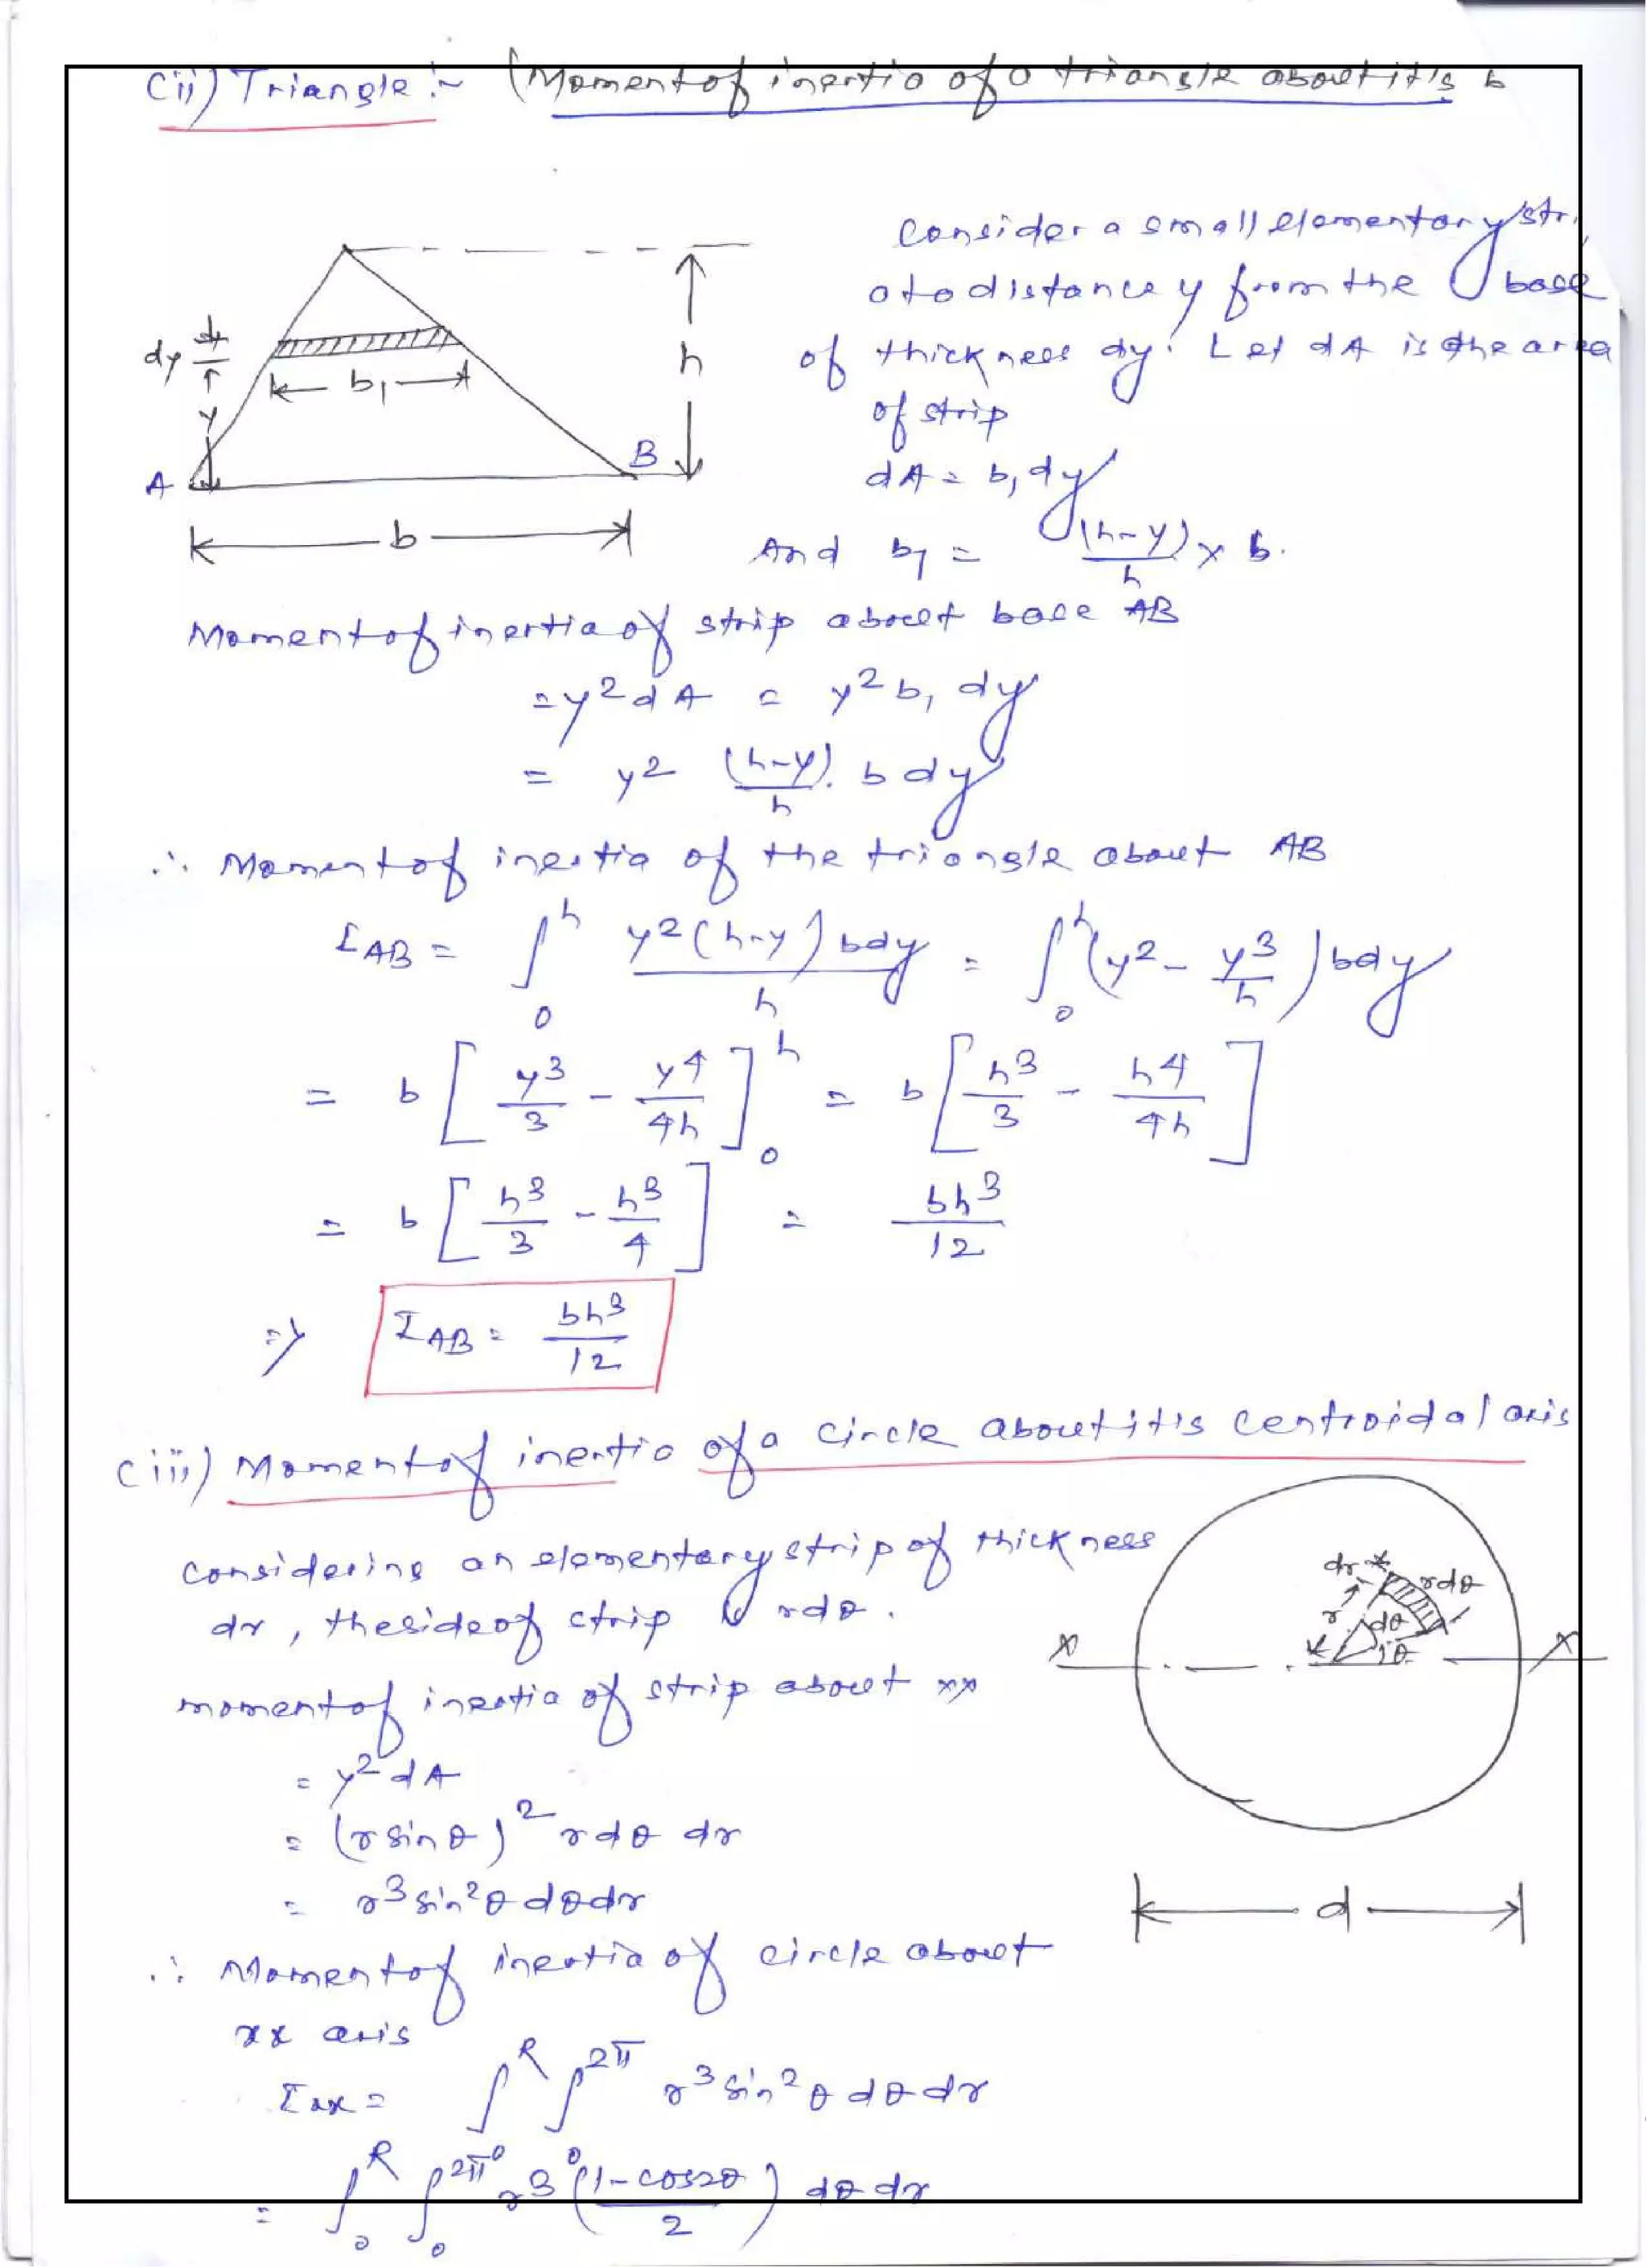 (ii) Triangle :- (Moment of inertia of a triangle about it's b
Consider a small elementary
at a distance y from the base
of thickness dy. Let dA is the area
of strip
dA = b₁ dy
And b₁ = (h-y)/h × b.
dy
y
b₁
h
A
B
b
Moment of inertia of strip about base AB
= y² dA = y² b₁ dy
= y² (h-y)/h . b dy
∴ Moment of inertia of the triangle about AB
I_AB = ∫₀ʰ y²(h-y) b dy / h = ∫₀ʰ (y² - y³/h) b dy
= b [y³/3 - y⁴/4h]₀ʰ = b [h³/3 - h⁴/4h]
= b [h³/3 - h³/4] = bh³/12
⇒ I_AB = bh³/12
(iii) Moment of inertia of a circle about it's centroidal axis
Considering an elementary strip of thickness
dr, the side of strip is rdθ.
moment of inertia of strip about xx
= y² dA
= (r sin θ)² r dθ dr
= r³ sin² θ dθ dr
∴ Moment of inertia of circle about
xx axis
dr
rdθ
r
dθ
θ
x
x
d
I_xx = ∫₀ᴿ ∫₀²ᵖⁱ r³ sin² θ dθ dr
= ∫₀ᴿ ∫₀²ᵖⁱ r³ (1-cos2θ)/2 dθ dr